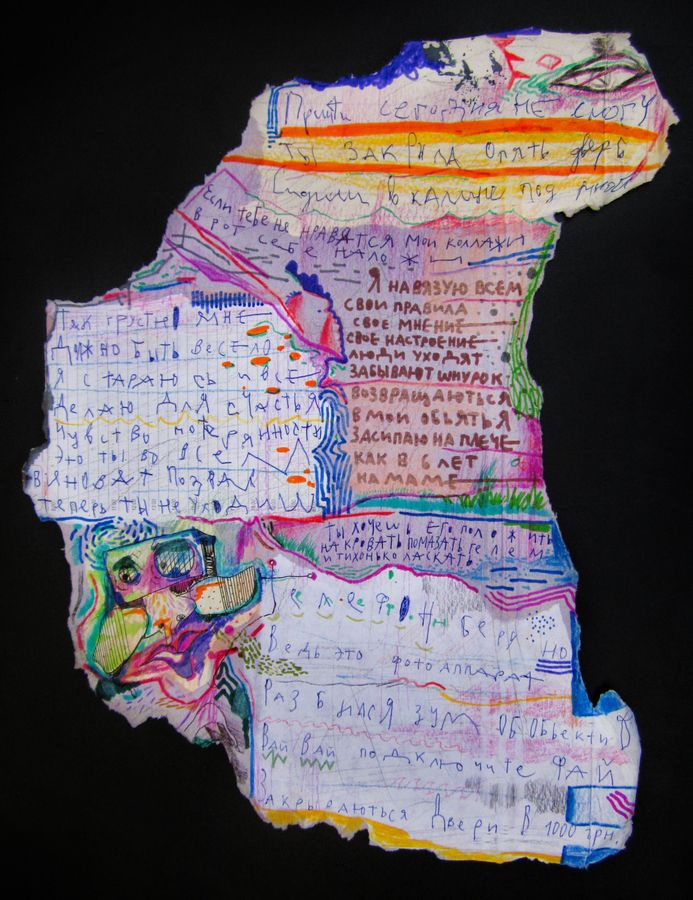 Прийти сегодня не смогу
Ты закрила опять дверь
Сидиш в камине под мной
Если тебе не нравятся мои коллажи
в рот себе нало ж и
Я навязую всем
свои правила
свое мнение
свое настроение
люди уходят
забывают шнурок
возвращаються
в мои обьятья
засипаю на плече
как в 6 лет
на маме
Так грустно мне
Должно быть весело
Я стараюсь и все
Делаю для счастья
чувство потерянности
это ты во всем
виноват позвал
теперь ты не уходиш
ты хочешь его положить
на кровать помазать гелем
и тихонько ласкать
Телефон беру но
Ведь это фотоаппарат
Разбился зум обобьектив
Вай Вай подключите фай
Закрываються Двери в 1000 грн.